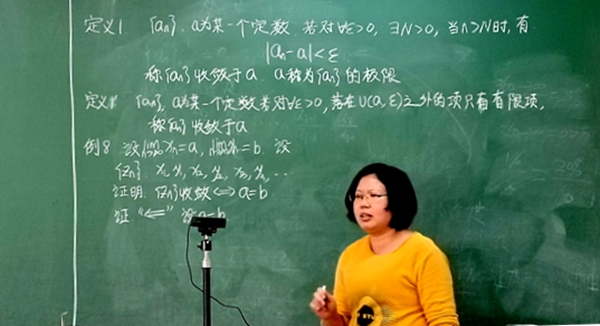 定义1 {aₙ}, a为某一个定数. 若对∀ε>0, ∃N>0, 当n>N时, 有
|aₙ-a|<ε
称{aₙ}收敛于a. a称为{aₙ}的极限
定义1' {aₙ}, a为某一个定数若对∀ε>0, 落在U(a, ε)之外的项只有有限项,
称{aₙ}收敛于a
例8 设lim xₙ=a, lim yₙ=b. 设
{zₙ}: x₁, y₁, x₂, y₂, x₃, y₃, ...
证明: {zₙ}收敛⟺a=b
证: "⟸" 设a=b